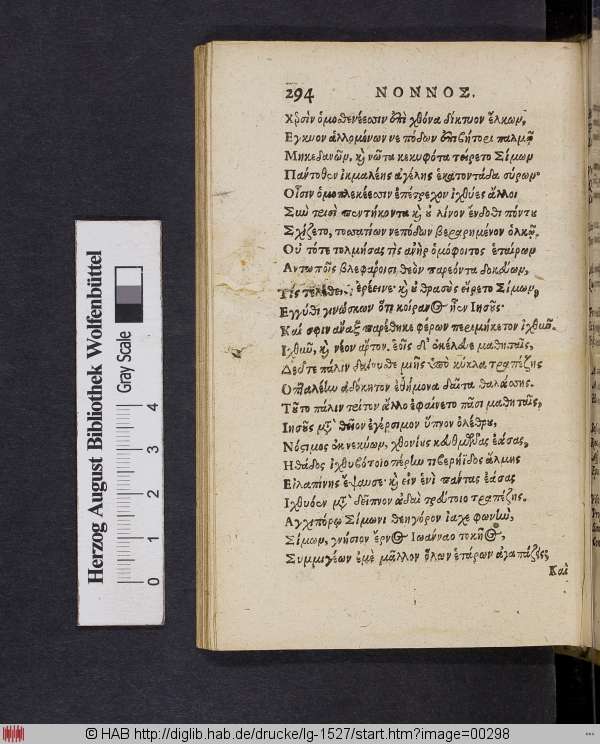 294 ΝΟΝΝΟΣ.
Χερσὶν ὁμοσθενέεσσιν ἐπὶ χθόνα δίκτυον ἕλκων,
Εγκυον ἁλλομένων νεπόδων ἐπιβήτορι παλμῷ
Μηκεδανῶν, καὶ νῶτα κεκυφότα τείρετο Σίμων
Παντοθεν ἰκμαλέης ἀγέλης ἑκατοντάδα σύρων·
Οἷσιν ὁμοπλεκέεσσιν ἐπέτρεχον ἰχθύες ἄλλοι
Σὺν τρισὶ πεντήκοντα καὶ οὐ λίνον ἔνδοθι πόντου
Σχίζετο, τοσσατίων νεπόδων βεβαρημένον ὁλκῷ.
Οὐ τότε τολμήσας τὶς ἀνὴρ ὁμόφοιτος ἑταίρων
Αντωποῖς βλεφάροισι θεὸν παρεόντα δοκεύων,
Τίς τελέθει, ἐρέεινε· καὶ οὐ θρασὺς εἴρετο Σίμων,
Εγγύθι γινώσκων ὅτι κοίρανος ἦεν Ιησοῦς·
Καί σφιν ἄναξ παρέθηκε φέρων περιμήκετον ἰχθὺν.
Ιχθὺν, καὶ νέον ἄρτον. ἑοῖς δ' ἐκέλευε μαθηταῖς,
Δεῦτε πάλιν δαίνυσθε μιῆς ὑπὸ κύκλα τραπέζης
Οπταλέην ἀδόκητον ἐθήμονα δαῖτα θαλάσσης.
Τοῦτο πάλιν τρίτον ἄλλο ἐφαίνετο πᾶσι μαθηταῖς,
Ιησοῦς μετὰ θεῖον ἐγέρσιμον ὕπνον ὀλέθρου,
Νόστιμος ἐκ νεκύων, χθονίους κευθμῶνας ἐάσας,
Ηθάδος ἰχθυβότοιο πέριξ τιβερηΐδος ἅλμης
Εἰλαπίνης ἔψαυσε· καὶ εἰν ἑνὶ πάντας ἐάσας
Ιχθυόεν μετὰ δεῖπνον ἀδαιτρεύτοιο τραπέζης.
Αγχιπόρῳ Σίμωνι θεηγόρον ἴαχε φωνὴν,
Σίμων, γνήσιον ἔρνος Ιωάνναο τοκῆος,
Συμμιγέων ἐμὲ μᾶλλον ὅλων ἑτάρων ἀγαπάζεις;
Καὶ
Herzog August Bibliothek Wolfenbüttel
Gray Scale
0 1 2 3 4
© HAB http://diglib.hab.de/drucke/lg-1527/start.htm?image=00298